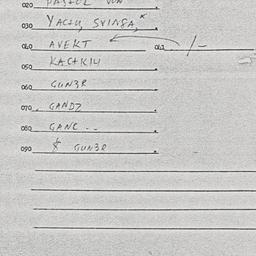 020 PASTOR VON
030 YACHY, SVINSA,*
040 AVEKT 043 /-
050 KACHKIU
060 GUN3R
070 GANDZ
080 GANC --
090 $ GUN3R